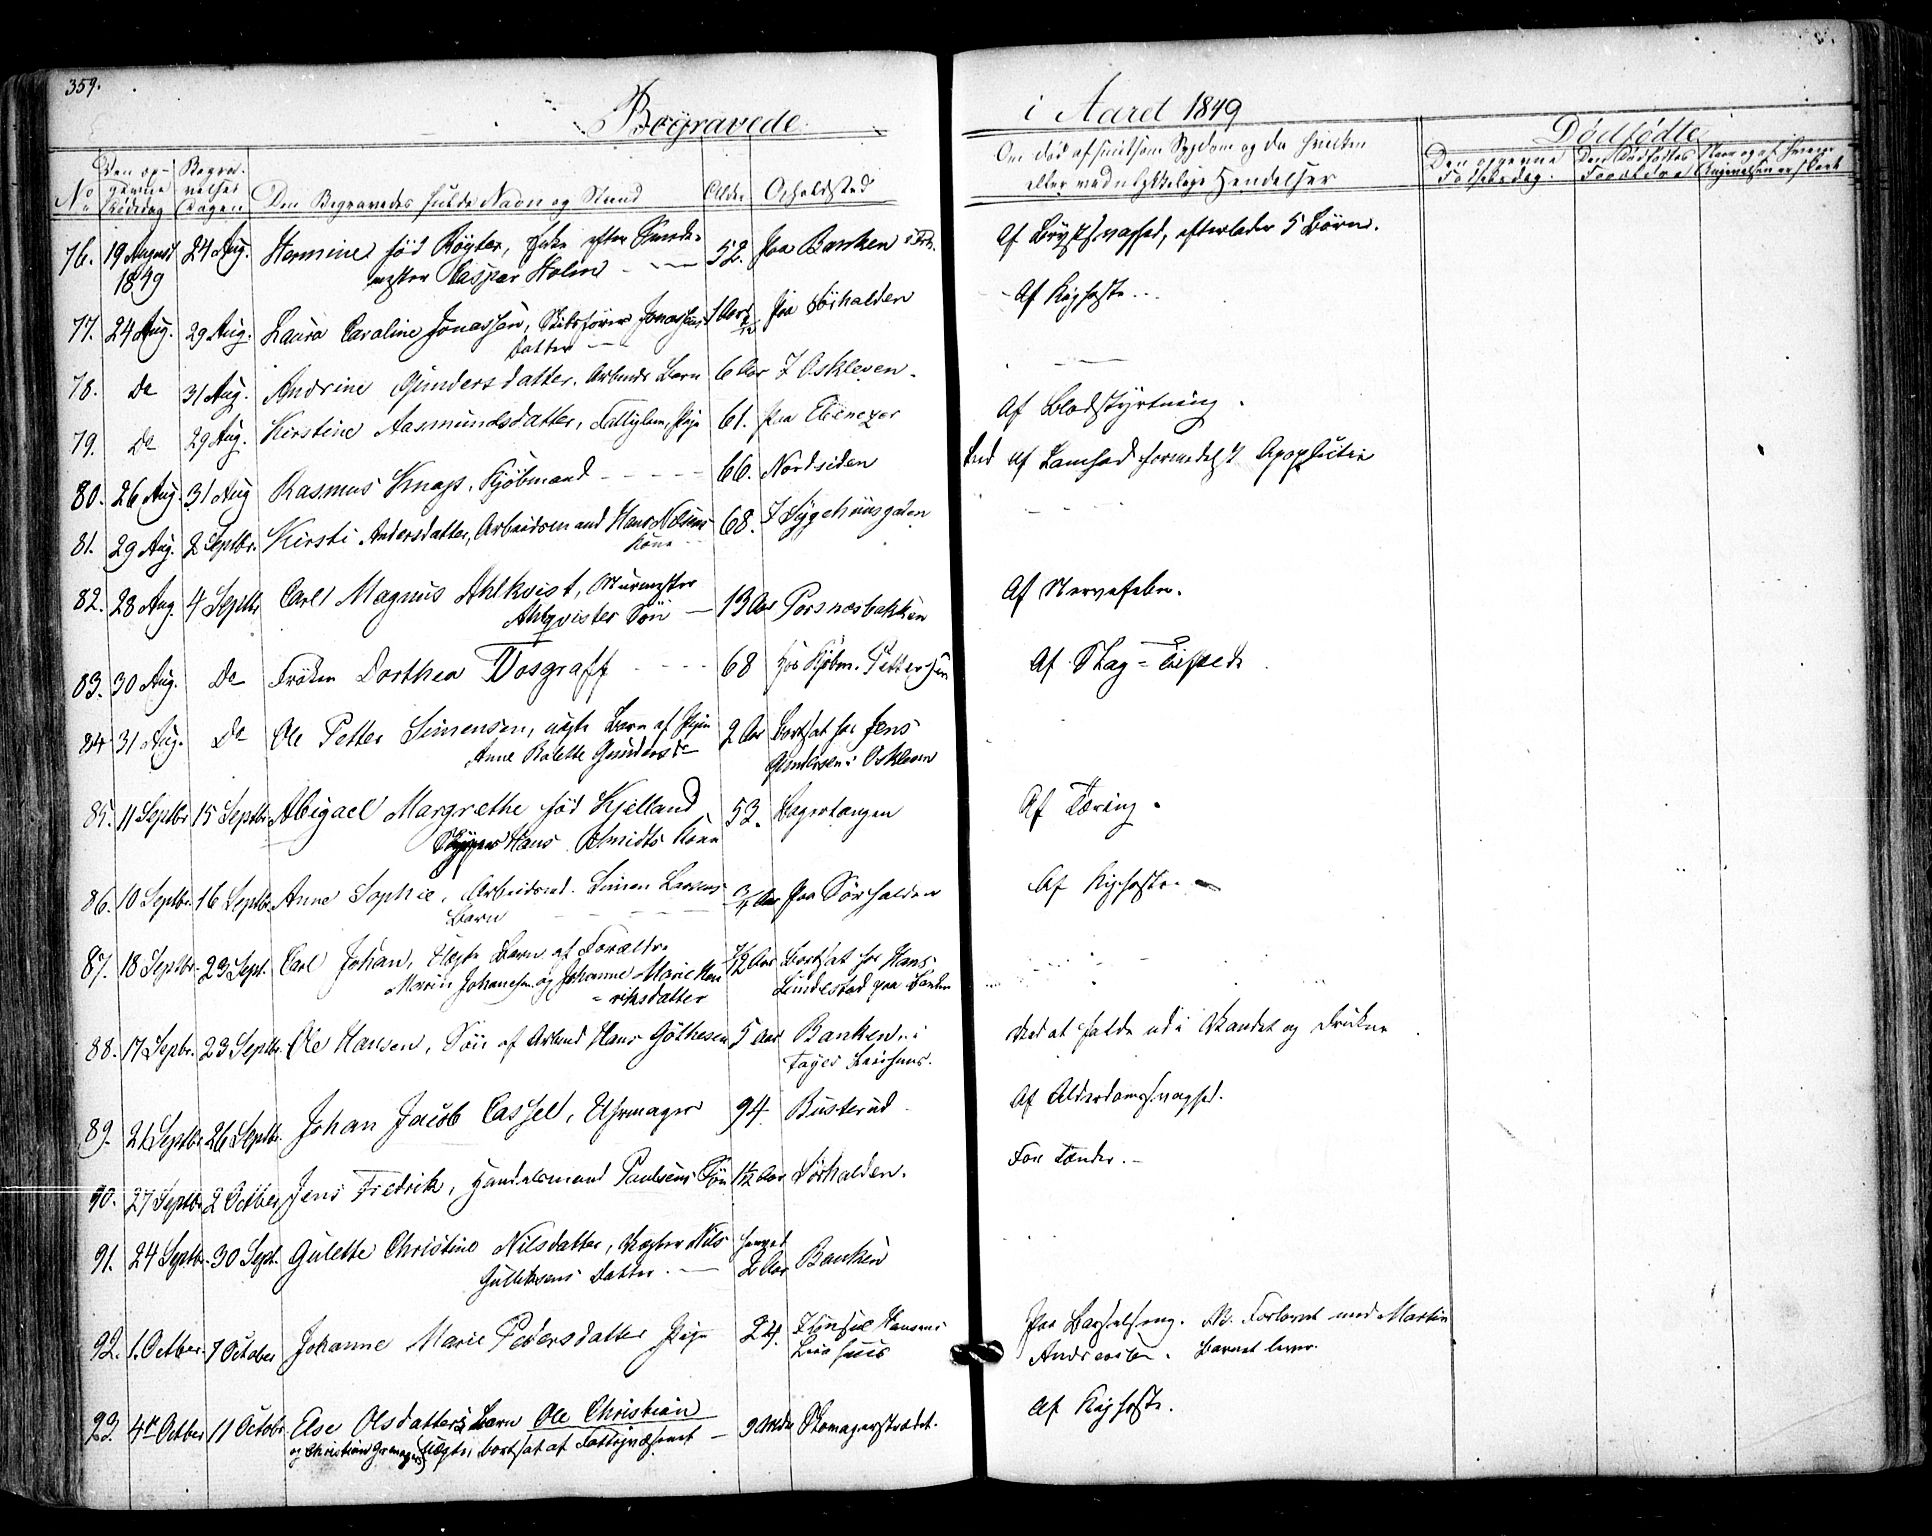 359.
Begravede
i Aaret 1849
Dødfødte
No
Den opgivne Dødsdag
Begravelses Dagen
Den Begravedes fulde Navn og Stand
Alder
Opholdsted
Om død af smitsom Sygdom og da hvilken
eller ved ulykkelige Hendelser
Den opgivne Fødselsdag.
Den Dødfødtes Forældre
76. 19 August 1849 24 Aug. Hermine fød Røyter, Enke efter
Caspar Holm 52. paa Banken
Af Brystsvaghed, efterlader 5 Børn.
77. 24 Aug. 29 Aug. Laura Caroline Jonassen, Skibsfører Jonassens
Datter 1 Aar paa Sørhalden
Af Kighoste
78. Do 31 Aug. Andrine Gundersdatter, Arbmds Barn 6 Aar I Oskleven.
79. Do 29 Aug. Kirstine Aasmundsdatter, Fattiglem, Pige 61. paa Ebenezer
Af Blodstyrtning.
80. 26 Aug. 31 Aug Rasmus Knap, Kjøbmand 66. Nordsiden
af Lamhed formedelst Apoplectie
81. 29 Aug. 2 Septbr. Kirsti Andersdatter, Arbeidsmand Hans Nilsens
Kone 68. I Sygehuusgaden
82. 28 Aug 4 Septbr Carl Magnus Ahlkvist, Murmester
Ahlqvistes Søn 13 Aar Porsnæsbakken
Af Nervefeber.
83. 30 Aug. Do Frøken Dorthea Vosgraff 68 hos Kjøbm. Pettersen
Af Slag-Tilfælde
84 31 Aug. Do Ole Petter Simensen, uægte Barn af Pigen
Anne Kolette Gundersdr 2 Aar Bortsat hos Jens
Gundersen i Oskleven
85. 11 Septbr 15 Septbr. Abigael Margrethe fød Kjelland
Skipper Hans Schmidts Kone 53. Bagertangen
Af Tæring.
86. 10 Septbr. 16 Septbr. Anne Sophie, Arbeidsmd. Simen Larsens
Barn 3/4 Aar paa Sørhalden
Af Kighoste.
87. 18 Septbr. 23 Sept. Carl Johan, Uægte Barn af Forældre
Martin Johansen og Johanne Marie Hen
=riksdatter 1/2 Aar Bortsat hos Hans
Lindestad paa Banken
88. 17 Sepbr. 23 Septbr. Ole Hansen, Søn af Arbmd Hans Göthesen 5 Aar Banken i
Ved at falde ud i Vandet og drukne
89. 21 Septbr 26 Septbr. Johan Jacob Cassel, Uhrmager 94. Busterud
Af Alderdomssvaghed.
90. 27 Septbr 2 Octber Jens Fredrik, Handelsmand Paulsens Søn 1 1/2 Aar Sørhalden.
For Tænder.
91. 24 Septbr. 30 Sept. Gulette Christine Nilsdatter, Vægter Nils
Gulliksens Datter. henved
2 Aar Banken
92. 1. Octber. 7 October Johanne Marie Pedersdatter Pige 24. I Consul Hansens
Leiehuus
paa Barselseng. NB. Forlovet med Martin
Andersen. Barnet lever.
93. 4de Octber 11 Octobr. Else Olsdatters Barn Ole Christian
og Christian Grenagers) uægte, bortsat af Fattigvæsenet 9 Mdr Skomagerstrædet.
Af Kighoste.